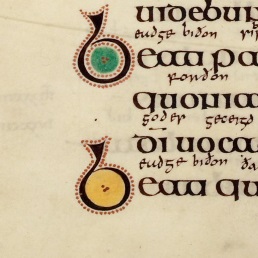 uidebun
eadge biðon
Beati pa
forðon
quonia
godes geceigd
di uoca
eadge biðon ða
Beati qu